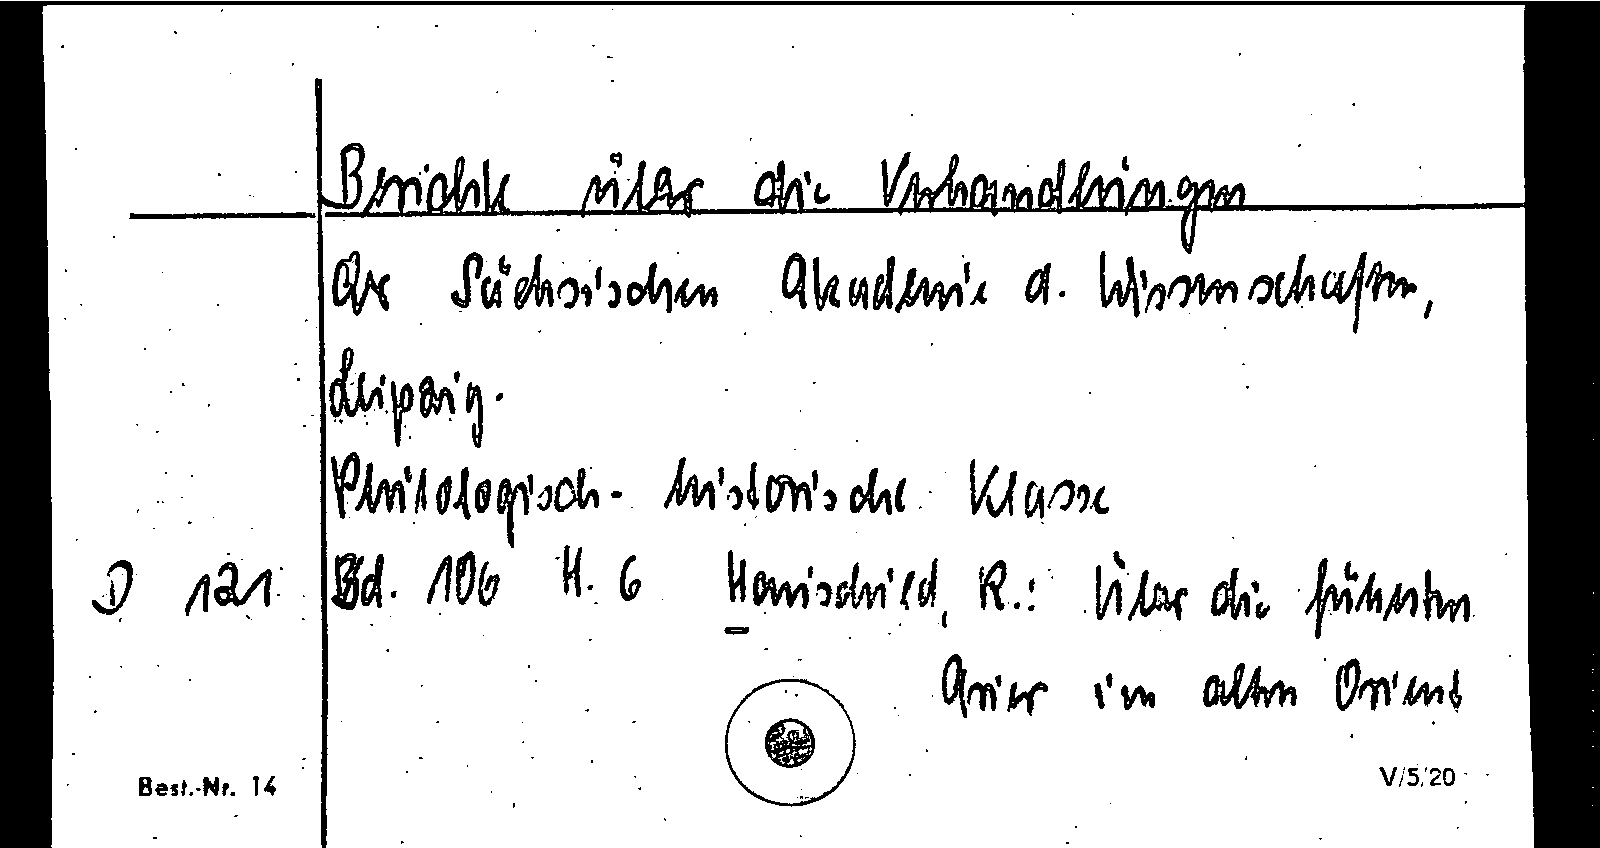 Berichte über die Verhandlungen
der Sächsischen Akademie d. Wissenschaften,
Leipzig.
Philologisch-historische Klasse
D 121 Bd. 106 H. 6 Hauschild, R.: Über die frühesten
Arier im alten Orient
Best.-Nr. 14 V/5/20